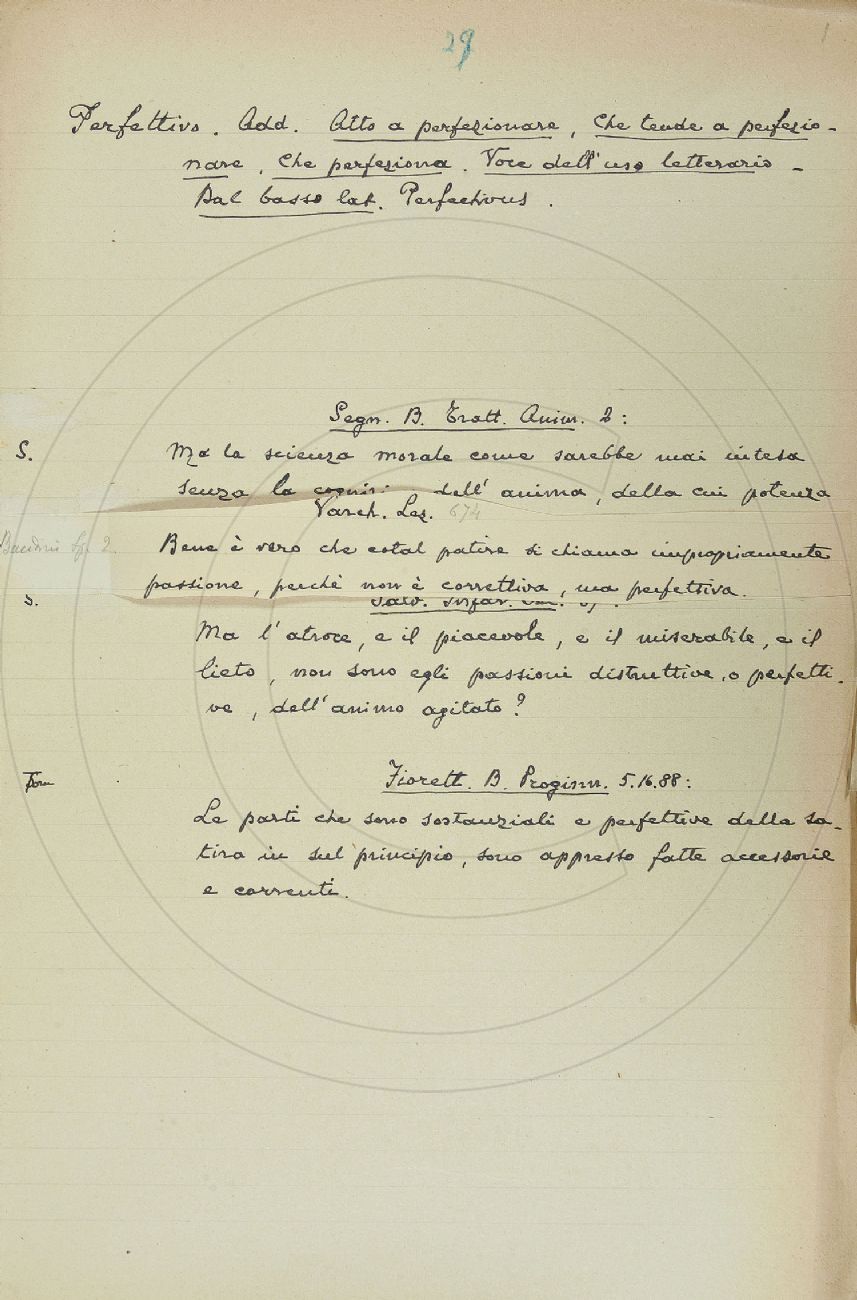 29
1
Perfettivo. Add. Atto a perfezionare, Che tende a perfezio-
nare, Che perfeziona. Voce dell'uso letterario -
Dal basso lat. Perfectivus.
Segn. B. Tratt. Anim. 2:
S. Ma la scienza morale come sarebbe mai intesa
senza la dell'anima, della cui potenza
Varch. Lez. 674
Bene è vero che cotal patire si chiama impropriamente
passione, perchè non è correttiva, ma perfettiva.
S.
Ma l'atroce, e il piacevole, e il miserabile, e il
lieto, non sono egli passioni distruttive, o perfetti-
ve, dell'animo agitato?
Fiorett. B. Proginn. 5.16.88:
Le parti che sono sostanziali e perfettive della sa-
tira in sul principio, sono appresso fatte accessorie
e correnti.